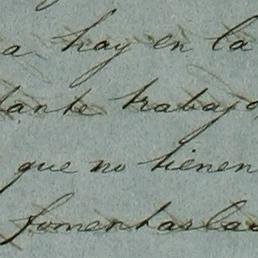 a hay en la
dante trabajo
que no tienen
fomentarlas